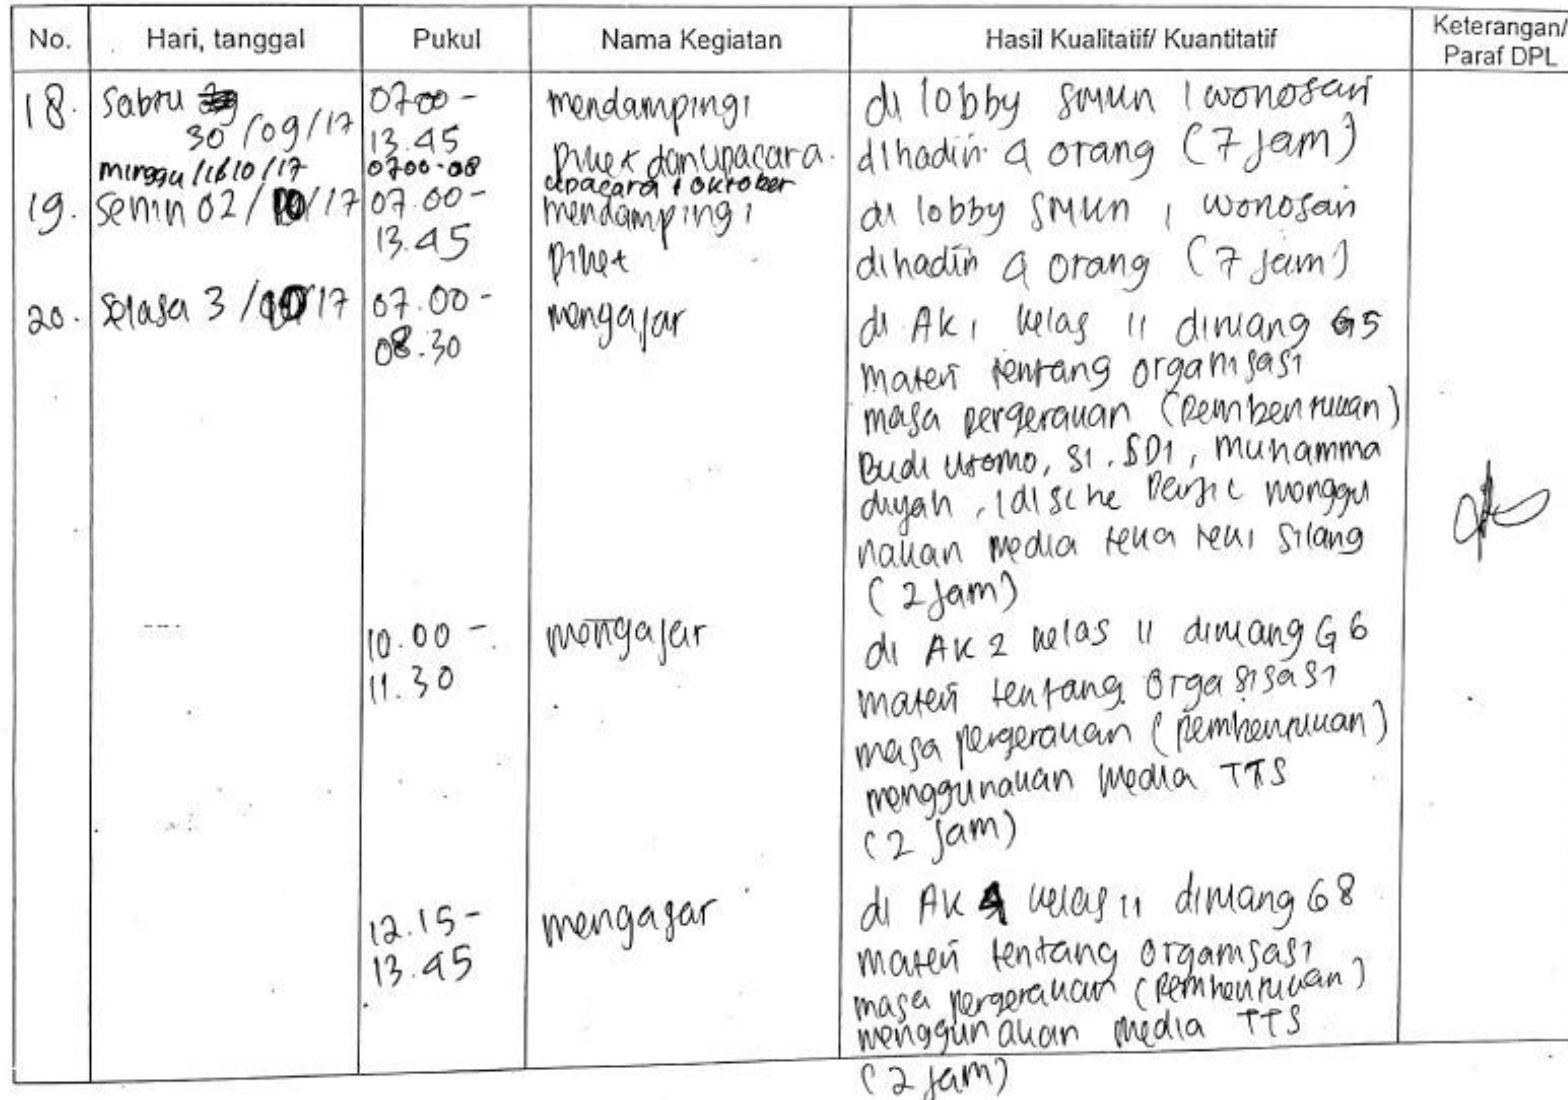 No. Hari, tanggal Pukul Nama Kegiatan Hasil Kualitatif/ Kuantitatif Keterangan/ Paraf DPL
18. Sabtu 30/09/17 07.00 - 13.45 mendampingi piket dan upacara. di lobby SMUN 1 wonosari
dihadiri 4 orang (7 jam)
minggu /1/10/17 0700-08 upacara 1 oktober
19. Senin 02/10/17 07.00 - 13.45 mendampingi piket di lobby SMUN 1 wonosari
dihadiri 4 orang (7 jam)
20. Selasa 3/10/17 07.00 - 08.30 mengajar di AK1 kelas 11 diruang G5
materi tentang organisasi
masa pergerakan (pembentukan)
Budi utomo, SI, SDI, Muhamma
diyah, Idische Partic menggu
nakan media teka teki silang
(2 jam)
10.00 - 11.30 mengajar di AK 2 kelas 11 diruang G6
materi tentang orgasisasi
masa pergerakan (pembentukan)
menggunakan media TTS
(2 jam)
12.15 - 13.45 mengajar di AK 4 kelas 11 diruang G8
materi tentang organisasi
masa pergerakan (pembentukan)
menggunakan media TTS
(2 jam)